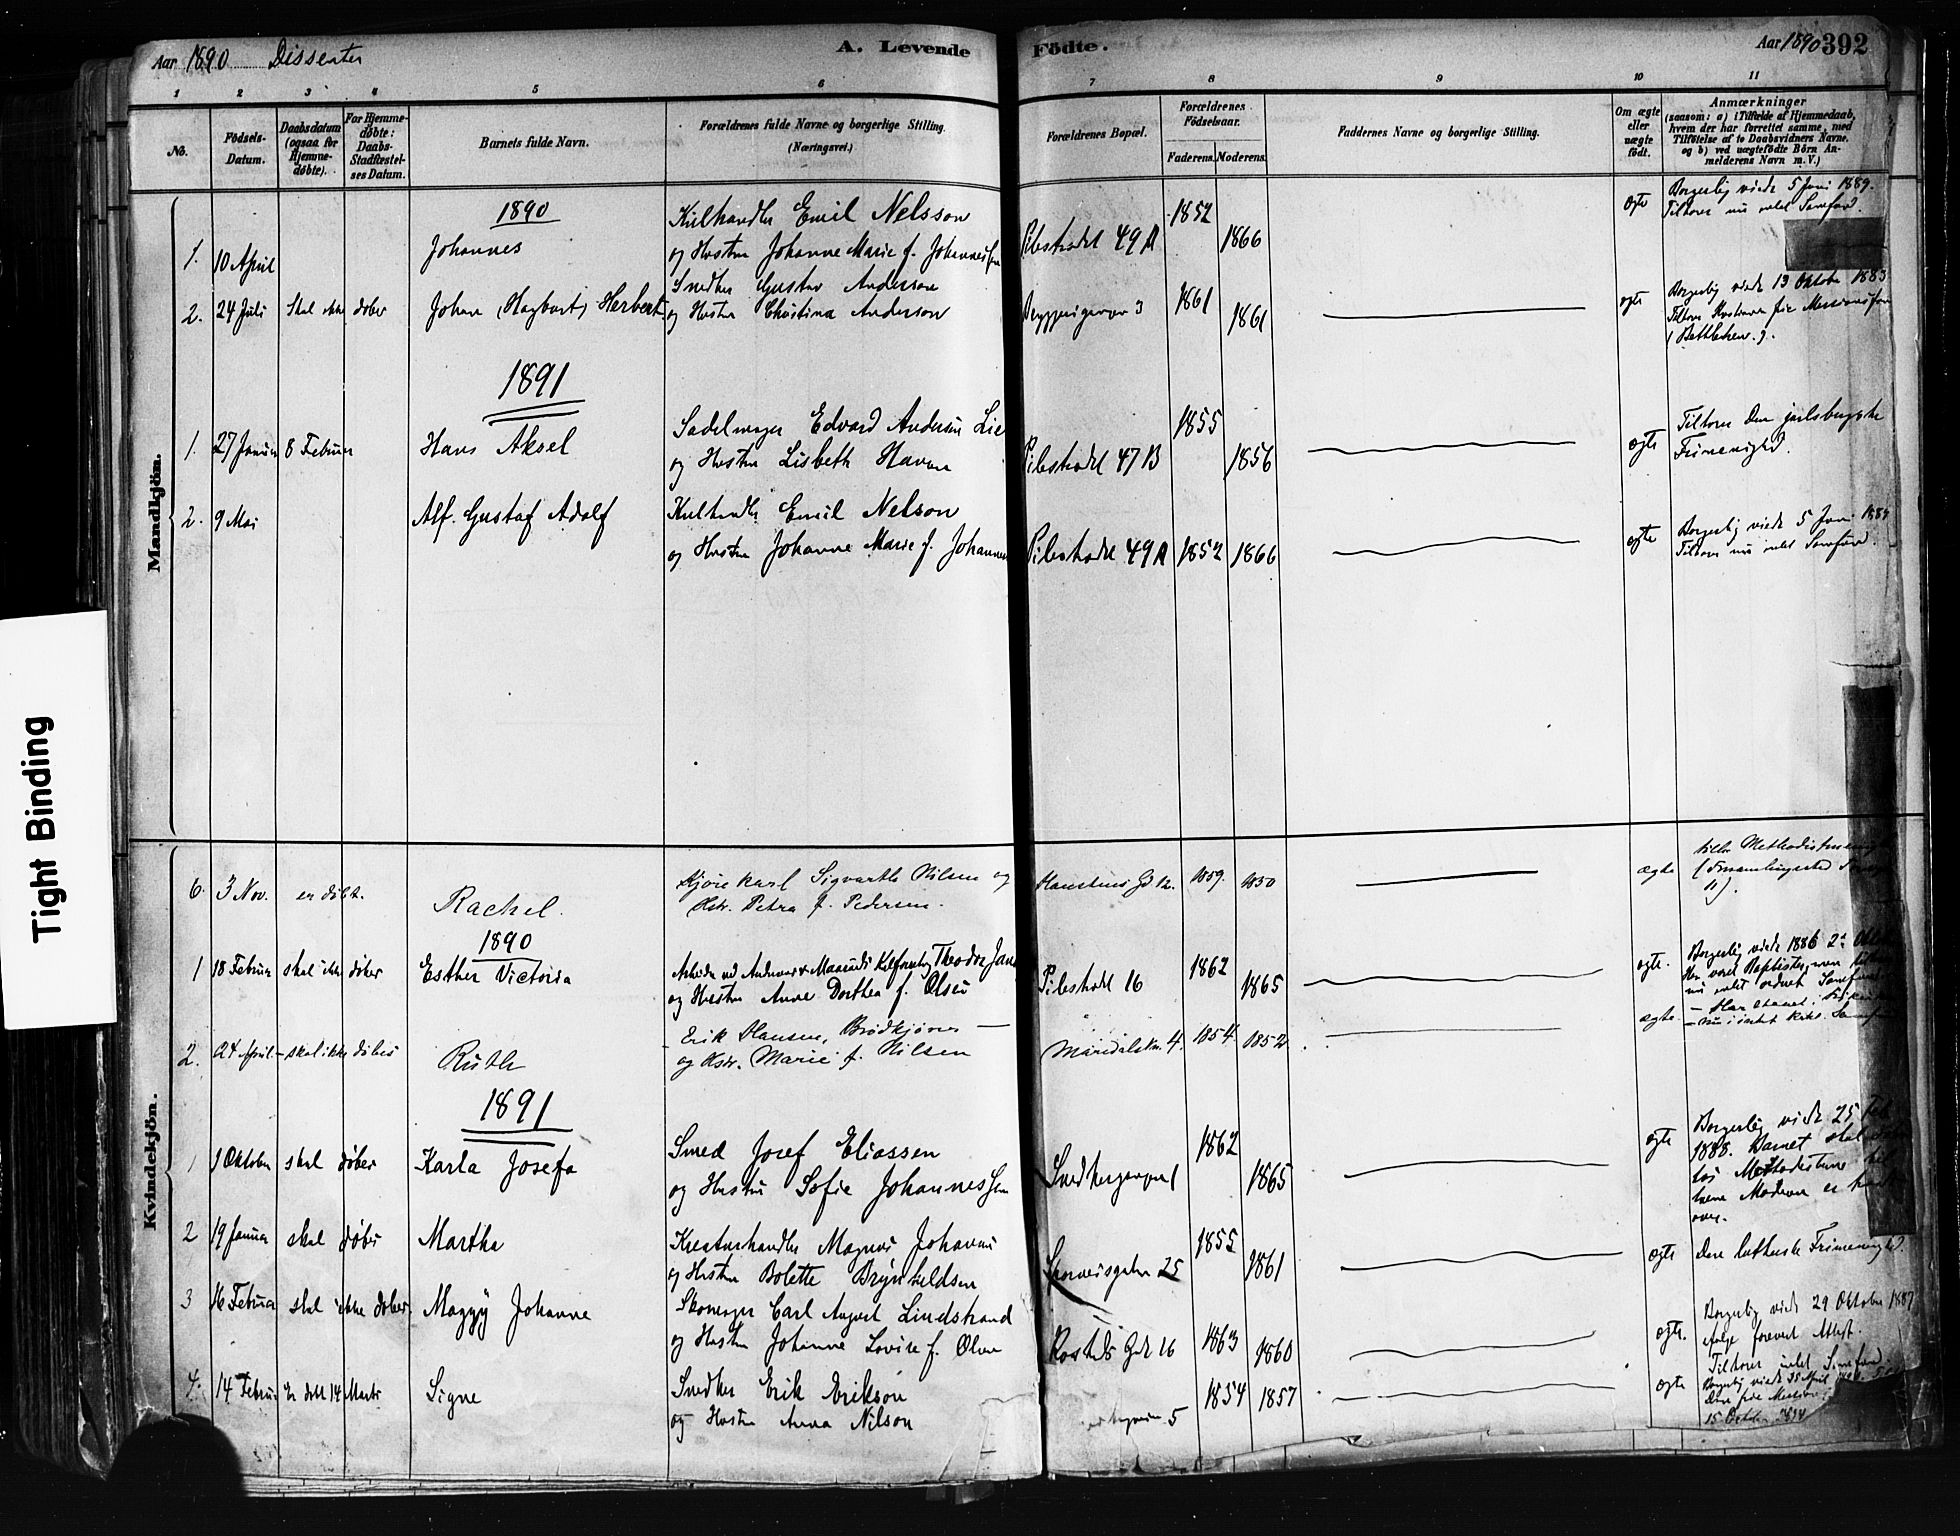 Tight Binding
Aar 1890 Dissenter
A. Levende Födte.
Aar 1890 392
1 2 3 4 5 6 7 8 9 10 11
No.
Födsels-Datum.
Daabsdatum (ogsaa för Hjemmedøbte).
For Hjemmedøbte: Daabs-Stadfæstelses Datum.
Barnets fulde Navn.
Forældrenes fulde Navne og borgerlige Stilling. (Næringsvei.)
Forældrenes Bopæl.
Forældrenes Födselsaar.
Faderens. Moderens.
Faddernes Navne og borgerlige Stilling.
Om ægte eller uægte födt.
Anmærkninger (saasom: a) i Tilfælde af Hjemmedaab, hvem der har forrettet samme, med Tilföielse af to Daabsvidners Navne. og b) ved uægtefödte Börn Anmelderens Navn m. V.)
Mandkjön.
1890
1. 10 April Johannes Kulhandler Emil Nelsson
og Hustru Johanne Marie f. Johannessen Pilestrædet 49 A 1852 1866 ægte Borgerlig viede 5 Juni 1889.
2. 24 Juli skal ikke døbes Johan (Hagbart) Herbert Snedker Gustav Anderson
og Hustru Christina Anderson 3 1861 1861 ægte Borgerlig viede 13 Oktober 1883
(Bethlehem.).
1891
1. 27 Januar 8 Februar Hans Aksel Sadelmager Edvard Andersen Lie
og Hustru Lisbeth Havn Pilestrædet 47 B 1855 1856 ægte Tilhører Den jarlsbergske
Frimenighed.
2. 9 Mai Alf. Gustaf Adolf Kulhandler Emil Nelson
og Hustru Johanne Marie f. Johannes Pilestrædet 49 A 1852 1866 ægte Borgerlig viede 5 Juni 1889
Kvindekjön.
6. 3 Nov. er døbt. Rachel. Kjørekarl Sigvarth Nilsen og
Hstr. Petra f. Pedersen. Hausmns Gd 12. 1859. 1850 ægte tilhr. Methodistmenigh
1890
1 18 Februar skal ikke døbes Esther Victoria Theodor
og Hustru Anne Dorthea f. Olsen Pilestrædet 16 1862 1865 ægte. Borgerlig viede 1886
2. 24 April skal ikke døbes Ruth Erik Hansen, Brødkjører
og Hstr. Marie f. Nilsen Maridalsvn. 4. 1854. 1852 ægte
1891
1 1 Oktober skal døbes Karla Josefa Smed Josef Eliassen
og Hustru Sofie Johannessen Snedkergangen 1 1862 1865 ægte Borgerlig viede 25 Feb
1888. Barnet skal døbes
hos Methodisterne
2 19 Januar skal døbes Martha Kreaturhandler Magnus Johannes
og Hustru Bolette Brynhildsen 25 1855 1861 ægte Den lutherske Frimenighed.
3 16 Februar skal ikke døbes Maggy Johanne Skomager Carl August Lindstrand
og Hustru Johanne Lovise f. Olsen Rosteds Gde 16 1863 1860 ægte. Borgerlig viede 29 Oktober 1887
ifølge forevist Attest.
4. 14 Februar Er døbt 14 Marts Signe Snedker Erik Erikson
og Hustru Anna Nilson 5 1854 1857 ægte
15 October 1894